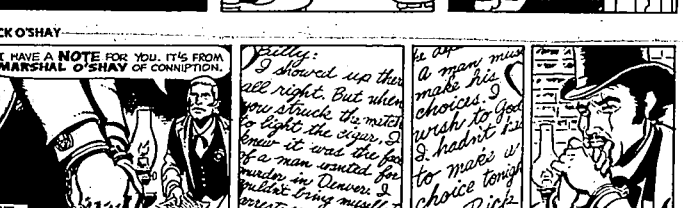 CK O'SHAY
I HAVE A NOTE FOR YOU. IT'S FROM
MARSHAL O'SHAY OF CONNIPTION.
Billy:
I showed up ther
all right. But when
you struck the match
to light the cigar, I
knew it was the face
of a man wanted for
murder in Denver. I
couldn't bring myself t
arrest
A man mus
make his
choices. I
wish to God
I hadn't ha
to make a
choice tonigh
Dick